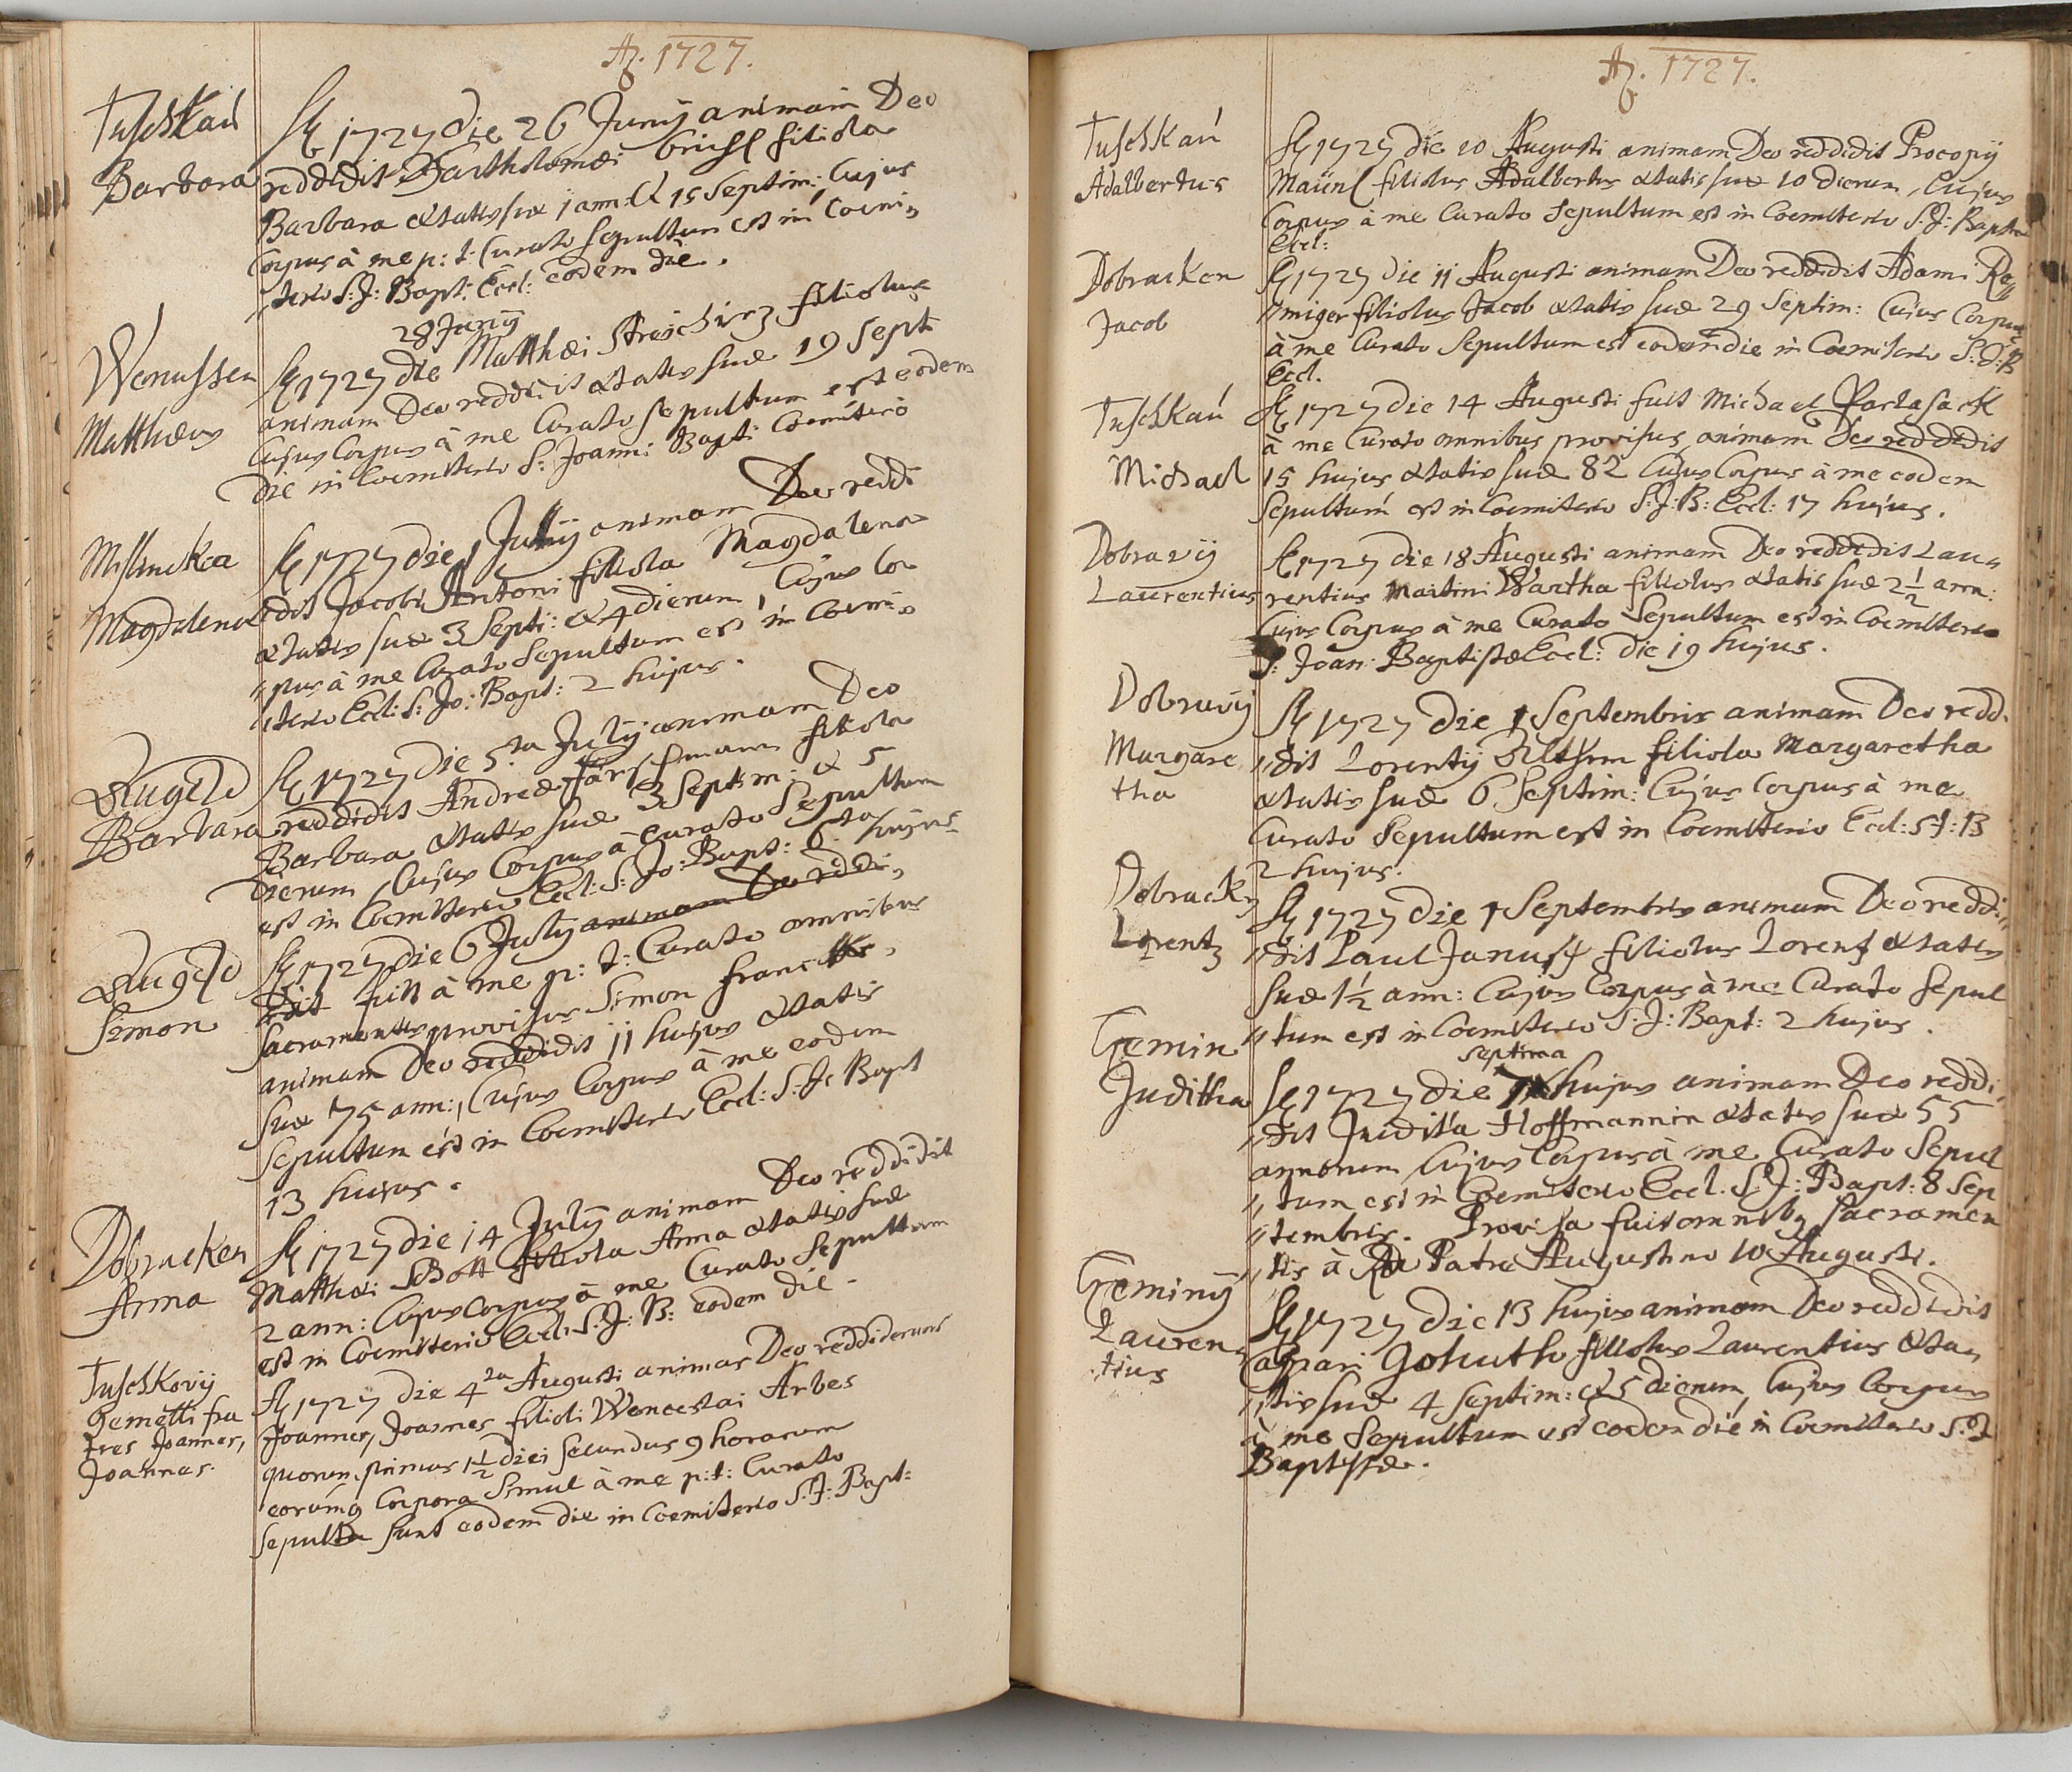 Aō. 1727.
Tuschkaú
Barbara
A̅o 1727 die 26 Junÿ animam Deo
reddidit Bartholomæi filiola
Barbara ætatis suæ 1 ann: & 15 Septim: Cujus
Corpus à me p: t: Curato sepultum est in Coemi„
„terio S: J: Bapt: Eccl: eodem die.
Wenussen
Matthæus
28 Junÿ
A̅o 1727 die Matthæi filiolus
animam Deo reddidit ætatis suæ 19 Sept
Cujus Corpus à me Curato sepultum est eodem
die in Coemiterio S: Joanni Bapt: Coemiterio
Mislincka
Magdalena
A̅o 1727 die 1 Julÿ animam Deo reddi
„dit Jacobi Antoni filiola Magdalena
ætatis suæ 3 Septi: & 4 dierum, Cujus Cor
„pus à me Curato Sepultum est in Coemi„
„terio Eccl: S: Jo: Bapt: 2 hujus.
Augezd
Barbara
A̅o 1727 die 5.ta Julÿ animam Deo
reddidit Andreæ filiola
Barbara ætatis suæ 3 Septim: & 5
dierum, Cujus Corpus à Curato Sepultum
est in Coemiterio Eccl: S: Jo: Bapt: 6ta hujus
Augezd
Simon
A̅o 1727 die 6 Julÿ animam Deo reddi„
dit fuit à me p: t: Curato omnibus
Sacramentis provisus Simon
animam Deo reddidit 11 hujus ætatis
suæ 75 ann:, Cujus Corpus à me eodem
Sepultum est in Coemiterio Eccl: S: J: Bapt
13 hujus.
Dobracken
Anna
A̅o 1727 die 14 Julÿ animam Deo reddidit
Matthæi Schott filiola Anna ætatis suæ
2 ann: Cujus Corpus à me Curato Sepultum
est in Coemiterio Eccl: S: J: B: eodem die.
Tuschkovÿ
Gemelli fra
tres Joannes,
Joannes.
A̅o 1727 die 4ta Augusti animas Deo reddiderunt
Joannes, Joannes filioli Wenceslai Arbes
quorum primus 1½ diei secundus 9 horarum
eorumq Corpora Simul à me p: t: Curato
Sepulta sunt eodem die in Coemiterio S: J: Bapt:
Aō. 1727.
Tuschkaú
Adalbertus
A̅o 1727 die 10 Augusti animam Deo reddidit Procopÿ
filiolus Adalbertus ætatis suæ 10 dierum, Cujus
Corpus à me Curato Sepultum est in Coemiterio S: J: Baptistæ
Eccl:
Dobracken
Jacob
A̅o 1727 die 11 Augusti animam Deo reddidit Adami Re„
„miger filiolus Jacob ætatis suæ 29 Septim: Cujus Corpus
à me Curato Sepultum est eodem die in Coemiterio S: J: B
Eccl.
Tuschkaú
Michael
A̅o 1727 die 14 Augusti fuit Michael Partasack
à me Curato omnibus provisus animam Deo reddidit
15 hujus ætatis suæ 82 Cujus Corpus à me eodem
Sepultum est in Coemiterio S: J: B: Eccl: 17 hujus.
Dobravÿ
Laurentius
A̅o 1727 die 18 Augusti animam Deo reddidit Lau„
rentius Martini Wartha filiolus ætatis suæ 2½ ann:
Cujus Corpus à me Curato Sepultum est in Coemiterio
S: Joan: Baptistæ Eccl: die 19 hujus.
Dobravÿ
Margare
tha
A̅o 1727 die 1 Septembris animam Deo reddi„
„dit Lorentÿ filiola Margaretha
ætatis suæ 6 Septim: Cujus Corpus à me
Curato Sepultum est in Coemiterio Eccl: S: J: B
2 hujus.
Dobracky
Lorentz
A̅o 1727 die 1 Septembris animam Deo reddi„
„dit Paul filiolus Lorentz ætatis
suæ 1½ ann: Cujus Corpus à me Curato Sepul
„tum est in Coemiterio S: J: Bapt: 2 hujus.
Czemin
Juditha
septima
A̅o 1727 die 7 hujus animam Deo reddi„
„dit Juditha Hoffmannin ætatis suæ 55
annorum Cujus Corpus à me Curato Sepul
„tum est in Coemiterio Eccl: S: J: Bapt: 8 Sep
„tembris. Provisa fuit omnibq Sacramen
„tis à Patre Augustino 10 Augusti.
Czeminÿ
Lauren„
tius
A̅o 1727 die 13 hujus animam Deo reddidit
Caspari Gohuth filiolus Laurentius æta„
„tis suæ 4 Septim: & 5 dierum, Cujus Corpus
à me Sepultum est eodem die in Coemiterio S: J
Baptistæ.